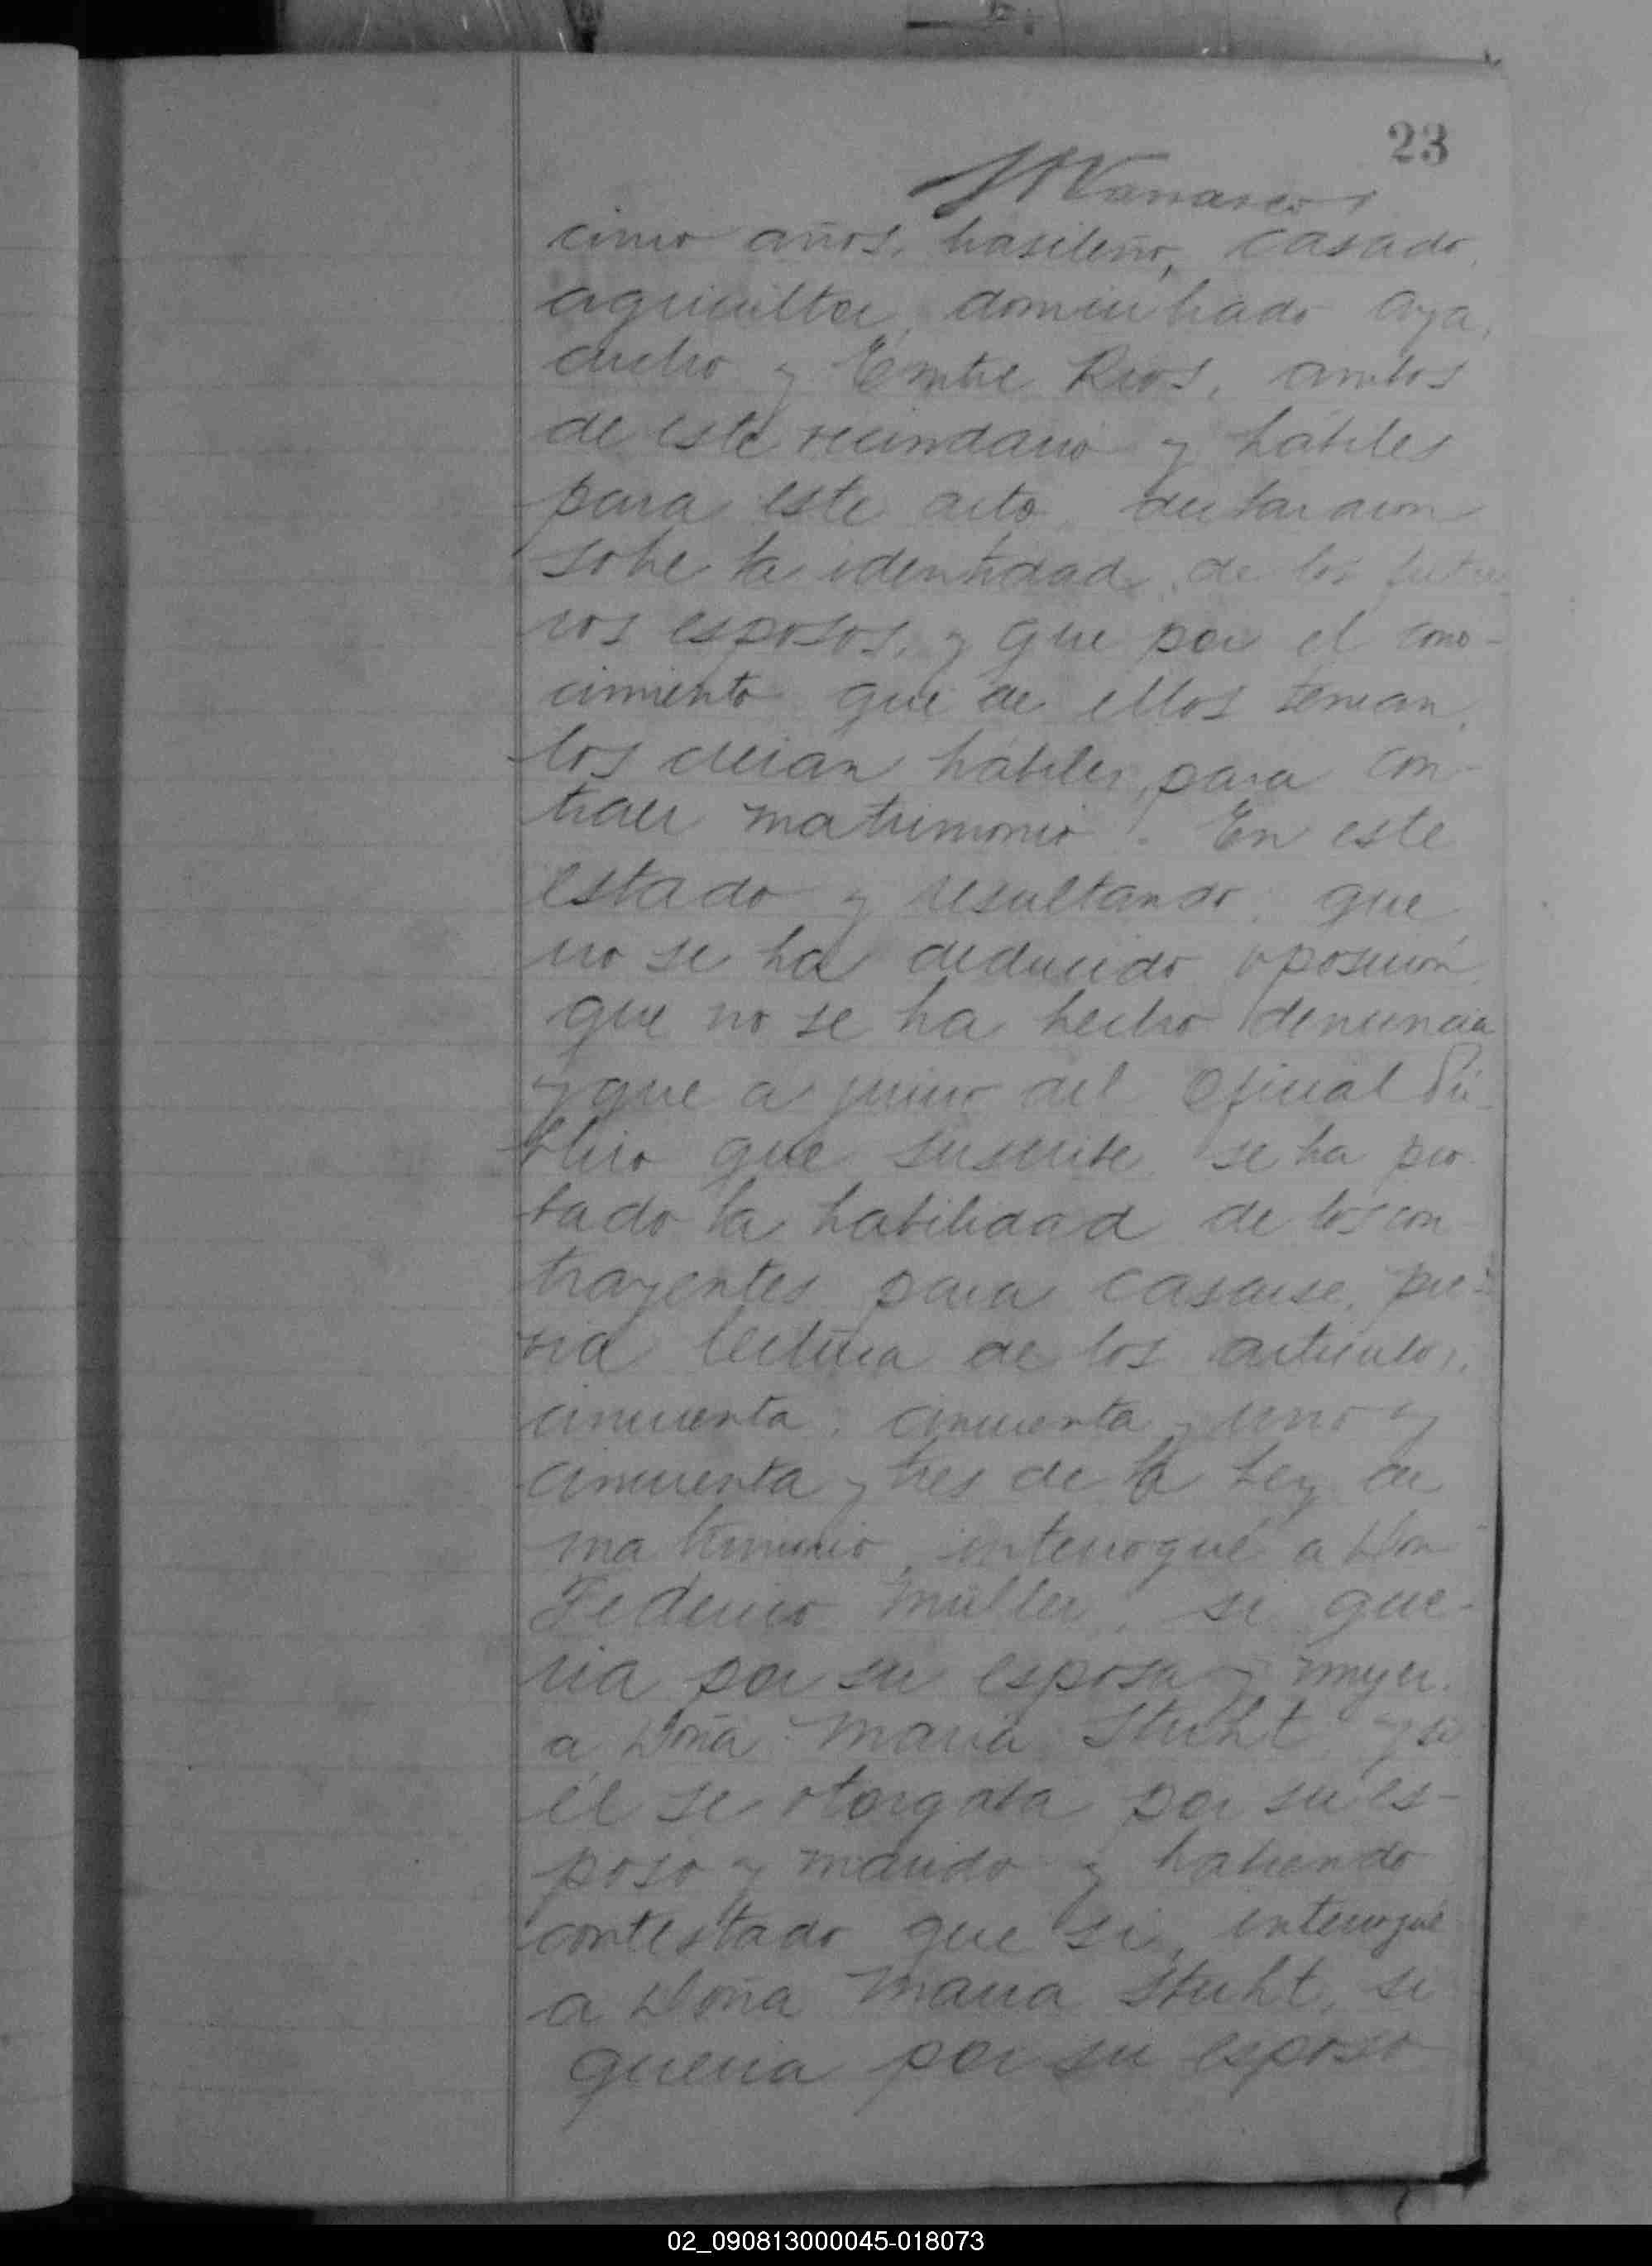 23
cinco años, brasileño, casado,
agricultor, domiciliado Aya,
cucho y Entre Rios, ambos
de este vecindario y hábiles
para este acto, declararon
sobre la identidad de los futu
ros esposos, y que por el cono-
cimiento que de ellos tenian,
los creian hábiles, para con-
traer matrimonio. En este
estado y resultando, que
no se ha deducido oposición,
que no se ha hecho denuncia
y que a juicio del Oficial Pú-
blico que suscribe se ha pro
bado la habilidad de los con
trayentes para casarse, pre-
via lectura de los articulos,
cincuenta, cincuenta y uno y
cincuenta y tres de la Ley de
matrimonio, interrogué a Don
Federico Müller, si que-
ria por su esposa y mujer,
a Doña Maria Stuht y si
él se otorgaba por su es-
poso y marido y habiendo
contestado que si, interrogué
a Doña Maria Stuht, si
queria por su esposo
02_090813000045-018073